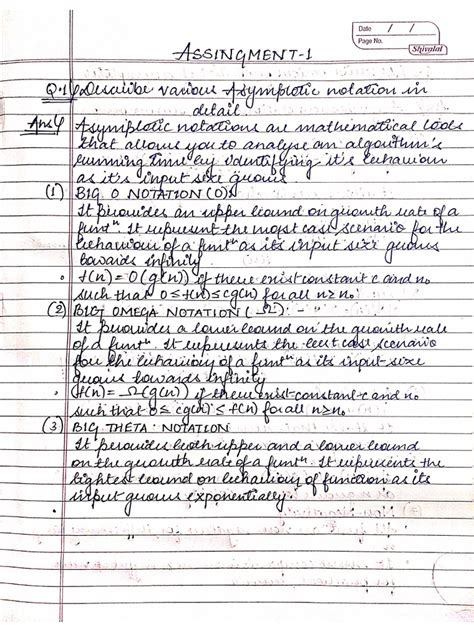 Date / /
Page No.
Shivalal
ASSINGMENT-1
Q.1 Describe various Asymptotic notation in
detail.
Ans Asymptotic notations are mathematical tools
that allows you to analyse an algorithm's
running time by identifying it's behaviour
as it's input size grows.
(1) BIG O NOTATION (O)
It provides an upper bound on growth rate of a
funtⁿ. It represent the most case scenario for the
behaviour of a funtⁿ as its input size grows
towards infinity
• f(n) = O(g(n)) if there exist constant c and n₀
such that 0 ≤ f(n) ≤ cg(n) for all n ≥ n₀
(2) BIG OMEGA NOTATION (Ω) : -
It provides a lower bound on the growth rate
of a funtⁿ. It represents the best case scenario
for the behaviour of a funtⁿ as its input size
grows towards infinity
• f(n) = Ω(g(n)) if there exist constant c and n₀
such that 0 ≤ cg(n) ≤ f(n) for all n ≥ n₀
(3) BIG THETA NOTATION
It provides both upper and a lower bound
on the growth rate of a funtⁿ. It represents the
tightest bound on behaviour of function as its
input grows exponentially.